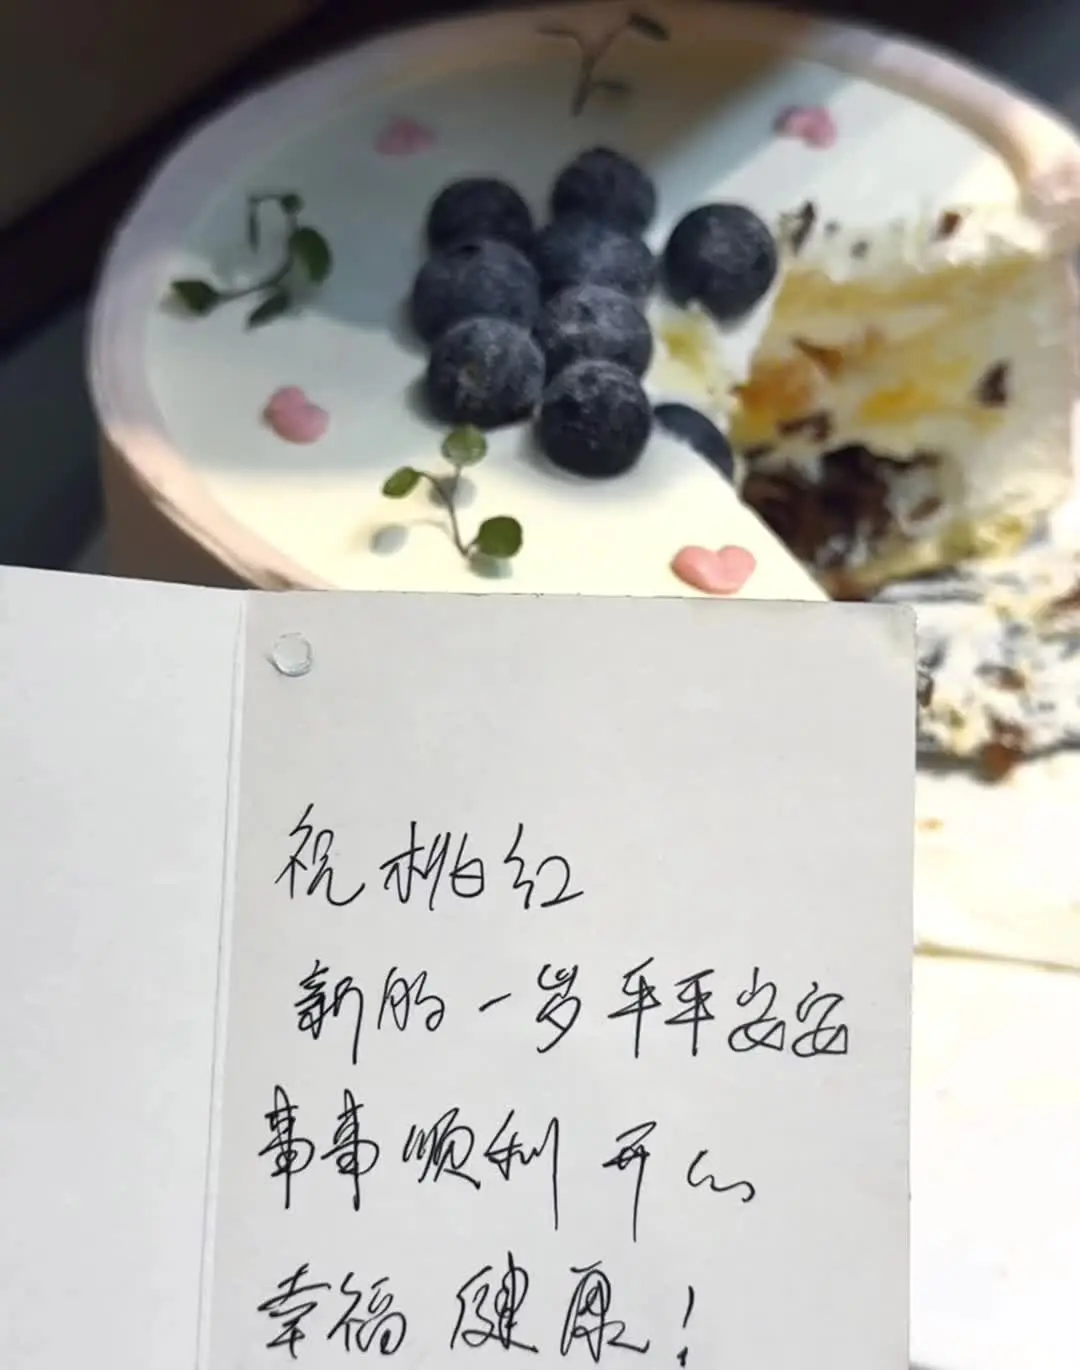 祝桃红
新的一岁平平安安
事事顺利 开心
幸福 健康！